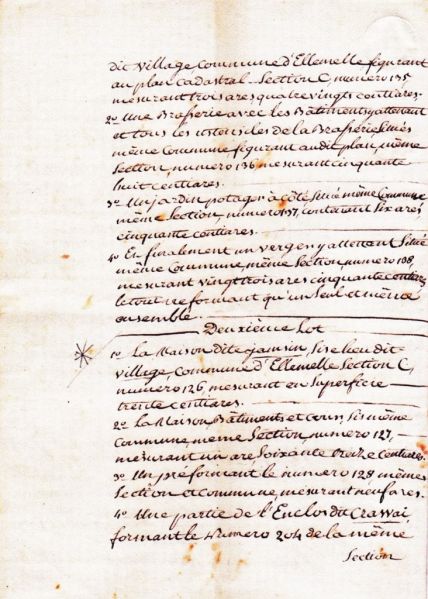 dit Village Commune d'Ellemelle figurant
au plan Cadastral Section C, numero 135
mesurant trois ares quatre vingts centiares.
2º Une Brasserie avec les Bâtiments y attenant
et tous les ustensiles de la Brasserie Situés
même Commune figurant audit plan, même
Section, numero 136 mesurant cinquante
huit centiares.
3º Un jardin potager à côté Situé même Commune
même Section, numero 137, contenant Six ares
cinquante centiares.
4º Et finalement un verger y attenant Situé
même Commune, même Section, numero 138,
mesurant vingt trois ares cinquante centiares
le tout ne formant qu'un Seul et même
ensemble.
Deuxième Lot
1º La Maison dite jamsin, Sise lieu dit
village, Commune d'Ellemelle Section C,
numero 126, mesurant en Superficie
trente centiares.
2º La Maison Bâtiments et cour, Sis même
Commune, même Section, numero 127,
mesurant un are Soixante treize Centiares.
3º Un pré formant le numero 128 mêmes
Section et commune, mesurant neuf ares.
4º Une partie de l'Enclos du Crawai
formant le Numero 204 de la même
Section